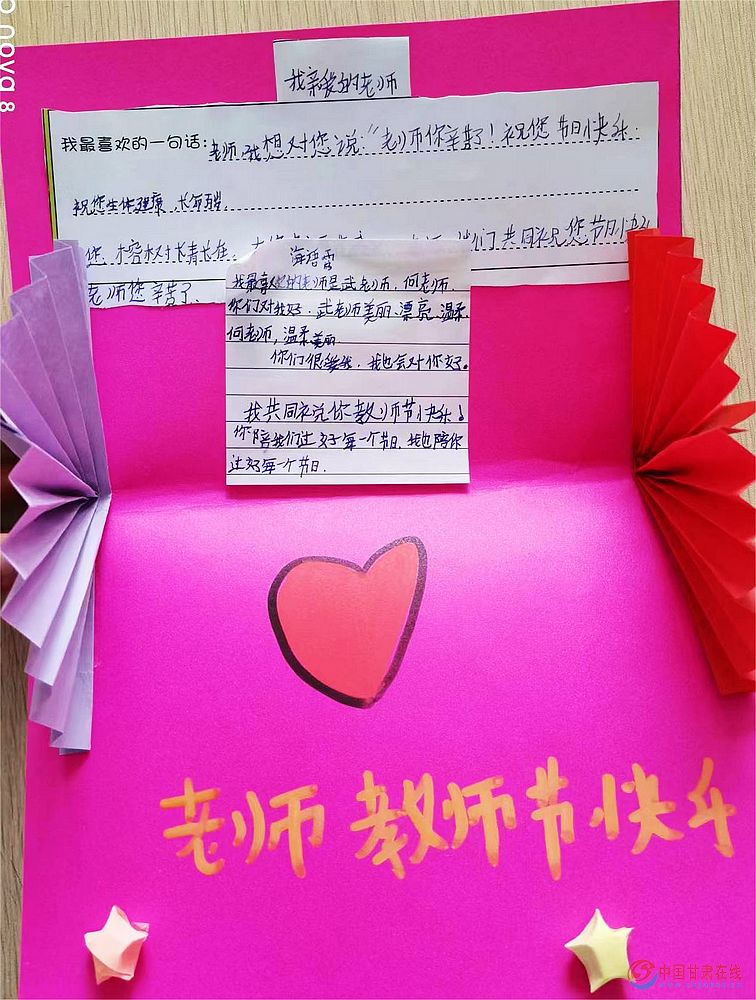 nova 8
我亲爱的老师
我最喜欢的一句话：老师,我想对您说："老师你辛苦了！祝您节日快乐.
祝您生体健康,长命百岁.
您,榕树长青长在.
们共同祝您节日快乐
老师您辛苦了.
海语雪
我最喜欢的老师是武老师,何老师.
你们对我好.武老师美丽、漂亮、温柔.
何老师,温柔美丽.
你们很 我.我也会对你好。
我共同祝说你教师节快乐！
你陪我们过好每一个节日.我也陪你
过好每一个节日.
老师 教师节快乐
中国甘肃在线